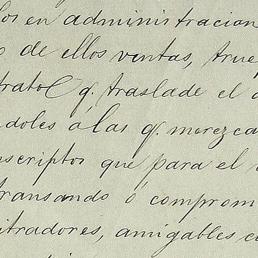 los en administracion
de ellos ventas, true
tratos q. traslade el d
ndoles á las q. merezca
scriptos que para el
transando ó comprom
itradores, amigables co